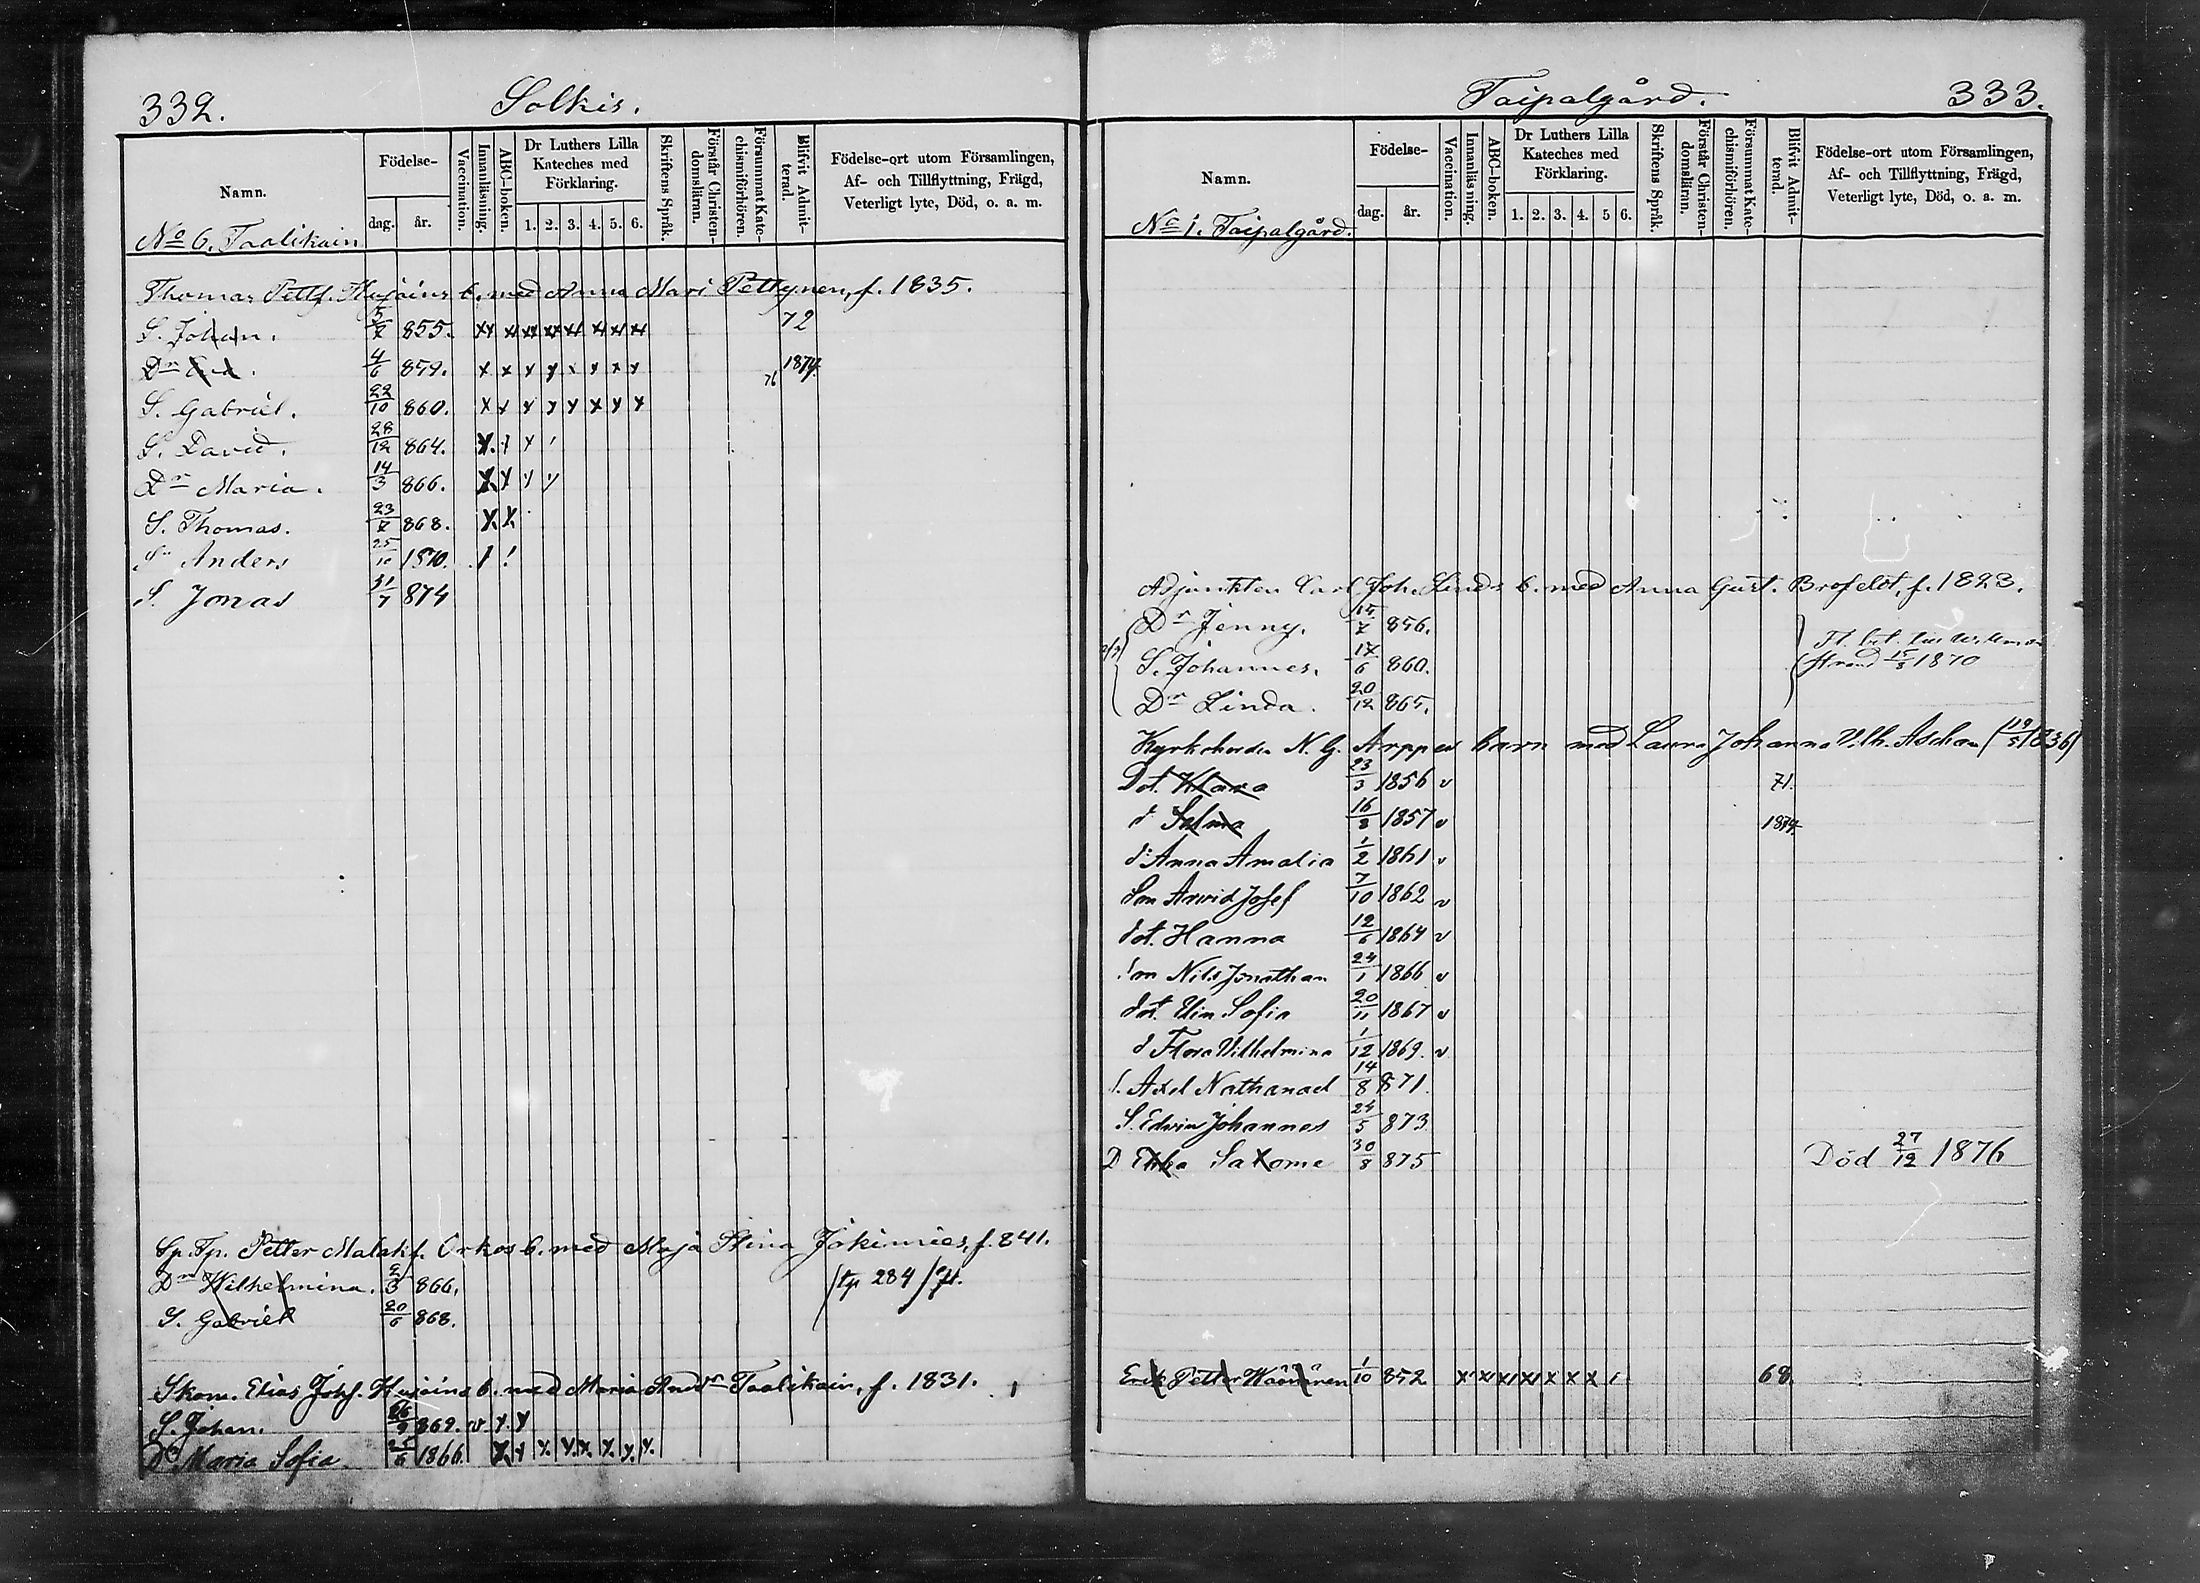 332.
Solkis.
Namn.
Födelse-
dag.
år.
Vaccination.
Innanläsning.
ABC-boken.
Dr Luthers Lilla
Kateches med
Förklaring.
1. 2. 3. 4. 5. 6.
Skriftens Språk.
Förstår Christen-
domsläran.
Försummat Kate-
chismiförhören.
Blifvit Admit-
terad.
Födelse-ort utom Församlingen,
Af- och Tillflyttning, Frägd,
Veterligt lyte, Död, o. a. m.
No 6. Taalikain
Thomas Pettf. Hujains b. med Anna Mari Pettynen, f. 1835.
S. Johan. 5/7 855. 72
Dr 4/6 859. 1874.
76
S. Gabriel. 22/10 860.
S. David. 28/12 864.
Dr Maria. 14/3 866.
S. Thomas. 23/7 868.
S. Anders 25/10 1870.
S. Jonas 31/7 874
Sp. Tp. Petter Malakf. Orkos b. med Maja Stina Jokimies, f. 841.
Dr Wilhelmina. 2/3 866. tp 284 / 71.
S. Gabriel 20/6 868.
Skom. Elias Johf. Hujains b. med Maria Andr Taalikain, f. 1831.
S. Johan. 26/9 862. v
Dr Maria Sofia 25/6 1866
333.
Taipalgård.
Namn.
Födelse-
dag.
år.
Vaccination.
Innanläsning.
ABC-boken.
Dr Luthers Lilla
Kateches med
Förklaring.
1. 2. 3. 4. 5 6.
Skriftens Språk.
Förstår Christen-
domsläran.
Försummat Kate-
chismiförhören.
Blifvit Admit-
terad.
Födelse-ort utom Församlingen,
Af- och Tillflyttning, Frägd,
Veterligt lyte, Död, o. a. m.
No 1. Taipalgård.
Adjunkten Carl Joh. Linds b. med Anna Gust. Brofeldt, f. 1823.
Dr Jenny. 15/7 856.
S. Johannes. 17/6 860. 15/3 1870
Dr Linda. 20/12 865.
Kyrkoherden N. G. Arppes barn med Laura Johanna Vilh. Aschan (19/5 1836)
Dot. Klara 23/3 1856 v 71.
d Selma 16/8 1857 v 1874.
d: Anna Amalia 1/2 1861 v
Son Arvid Josef 7/10 1862 v
dot. Hanna 12/6 1864 v
son Nils Jonathan 24/1 1866 v
dot. Elin Sofia 20/11 1867 v
d Flora Vilhelmina 1/12 1869. v
S. Axel Nathanael 14/8 871.
S. Edwin Johannes 24/5 873
D Ebba Salome 30/8 875 Död 27/12 1876
Erik Petter Häänänen 1/10 852 68.